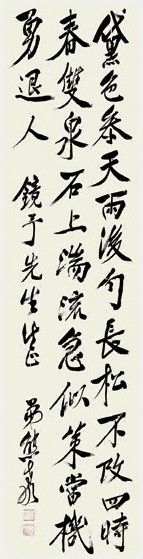 黛色參天雨後勻長松不改四時
春雙泉石上湍流急似策當機
勇退人 鏡予先生正 弟熊